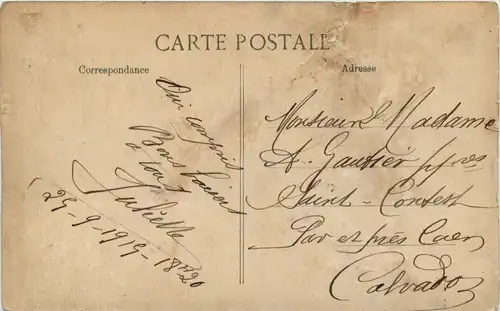 CARTE POSTALE
Correspondance
Adresse
Bons baisers
à tous
Juliette
29-9-1919-18h20
Monsieur & Madame
A. Gautier
Saint-Contest
Par et près Caen
Calvados